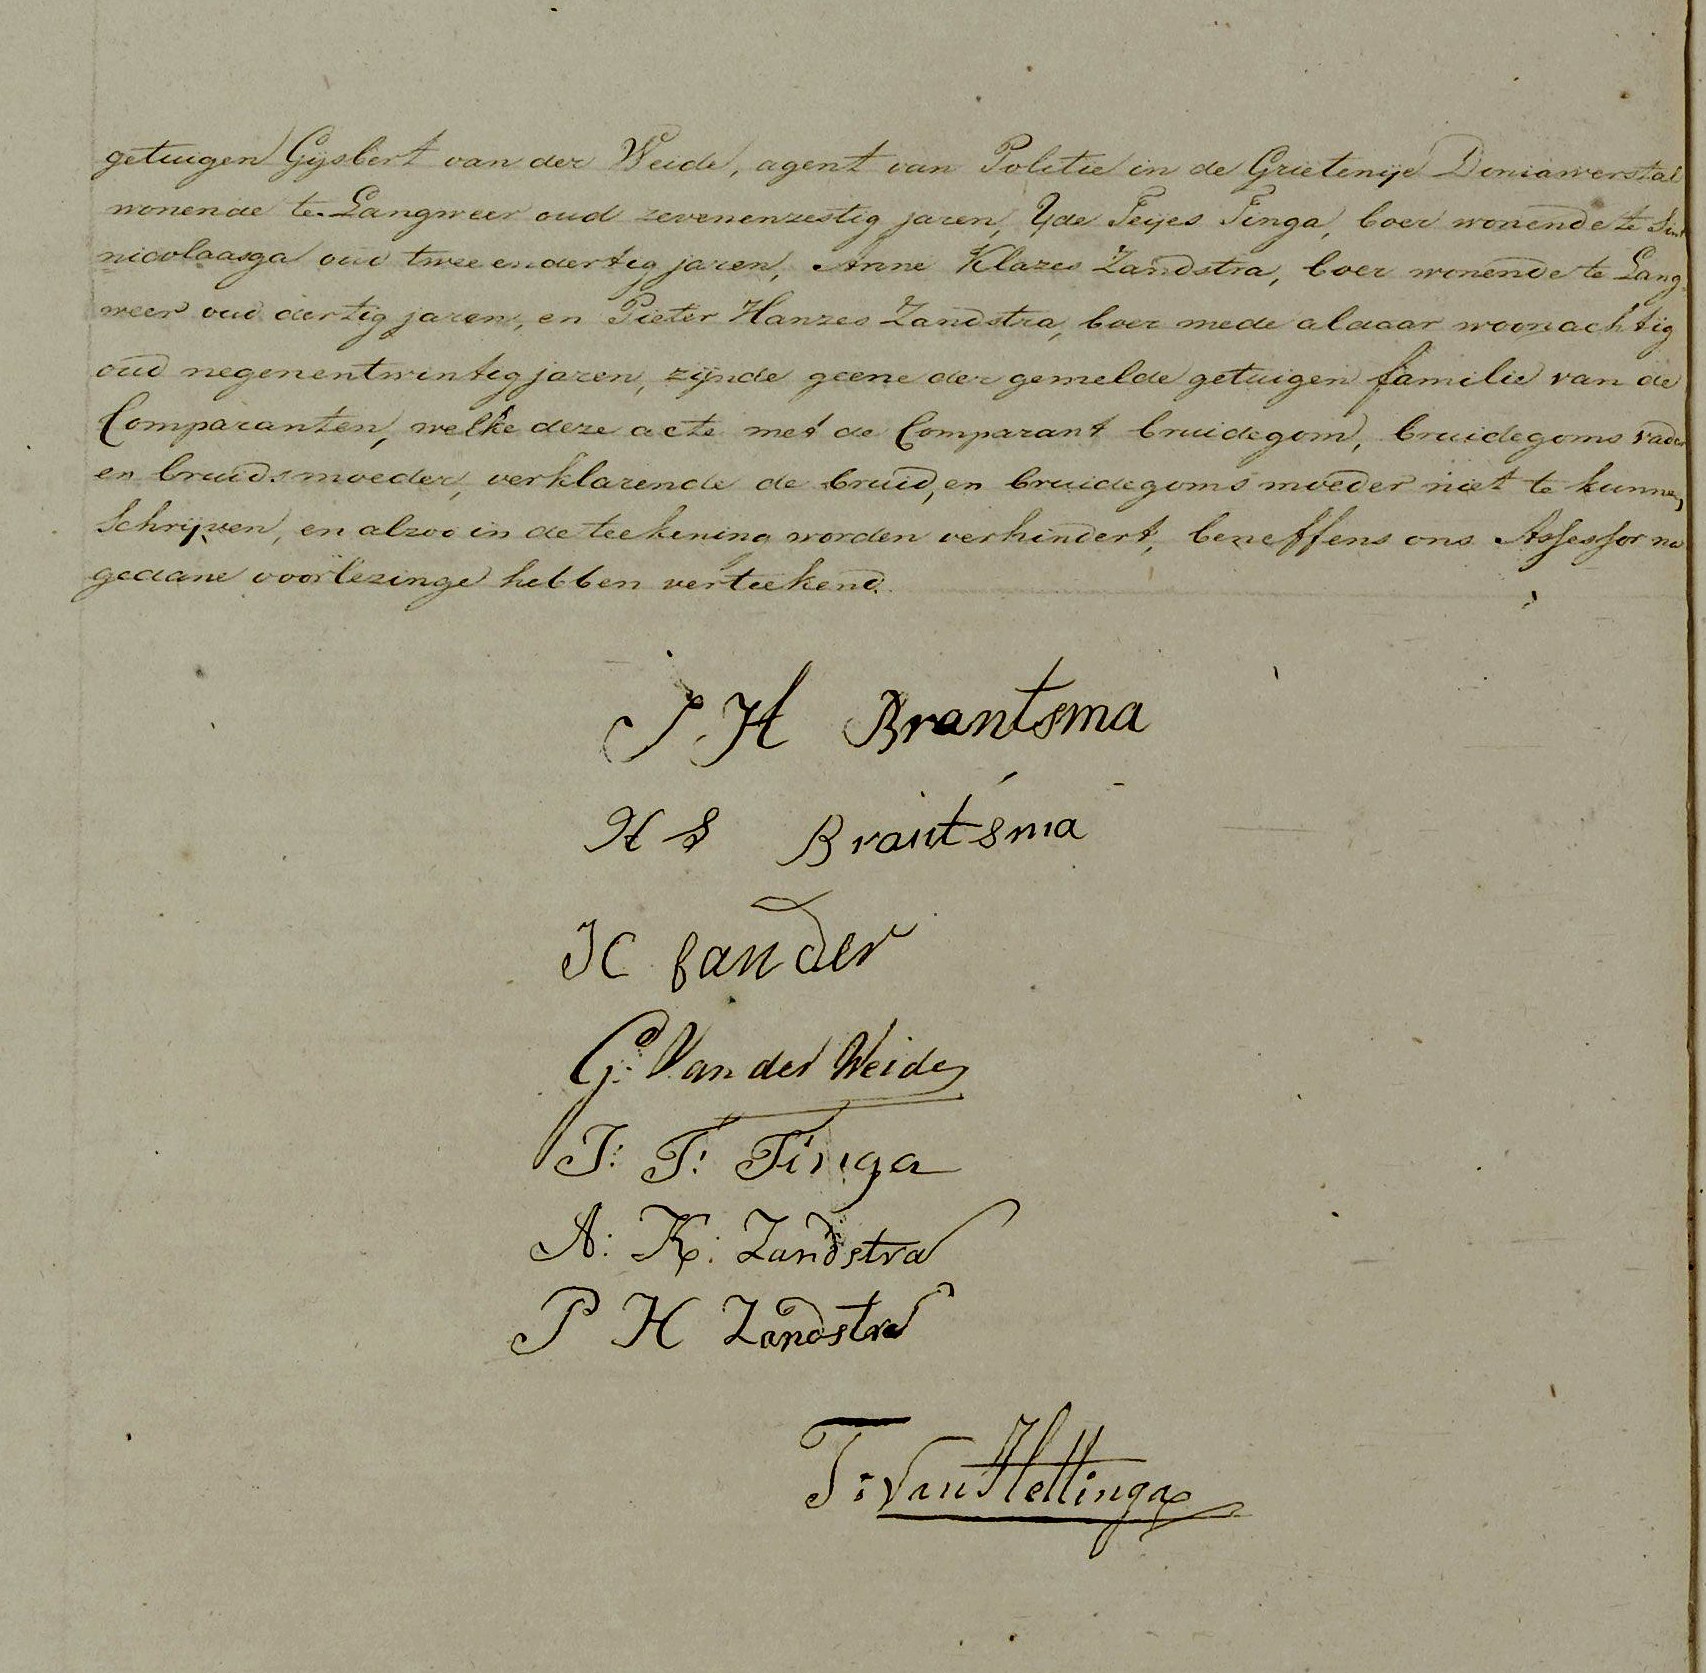 getuigen Gijsbert van der Weide, agent van Politie in de Grietenije Doniawerstal
wonende te Langweer oud zevenenzestig jaren, Yde Feijes Finga, boer wonende te Sint
nicolaasga oud twee endertig jaren, Anne Klazes Zandstra, boer wonende te Lang
weer oud dertig jaren, en Pieter Hanzes Zandstra, boer mede aldaar woonachtig
oud negenentwintig jaren, zijnde geene der gemelde getuigen familie van de
Comparanten, welke deze acte met de Comparant bruidegom, bruidegoms vader
en bruidsmoeder, verklarende de bruid, en bruidegoms moeder niet te kunnen
Schrijven, en alzoo in de teekening worden verhindert, beneffens ons Assessor na
gedane voorlezinge hebben verteekend.
S. H Brantsma
H S Brantsma
K fander
G: Van der Weide
J: F: Finga
A: K: Zandstra
P H Zandstra
T: Van Hettinga